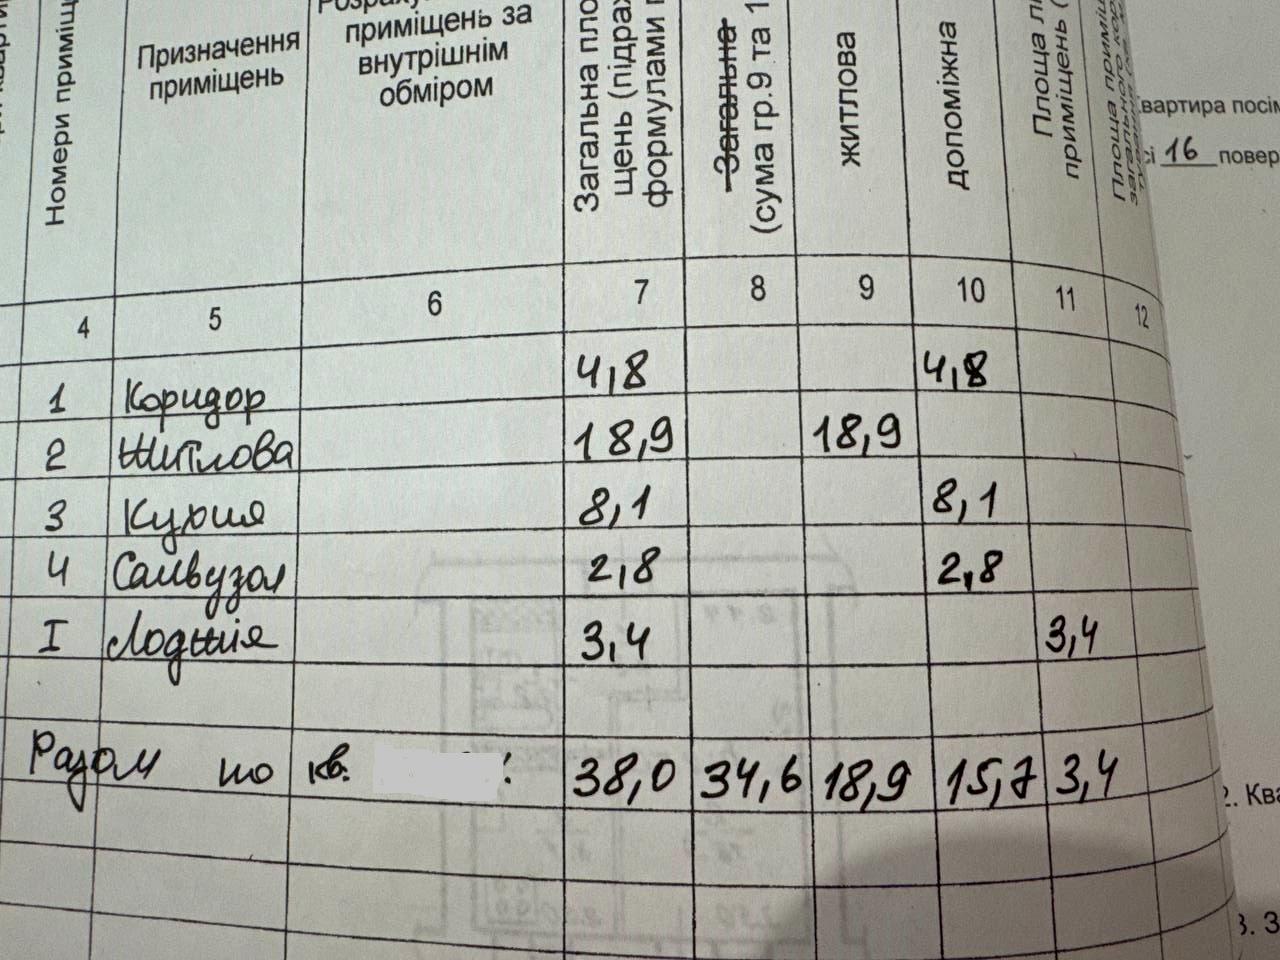 Номери приміщ
Призначення
приміщень
приміщень за
внутрішнім
обміром
Загальна пло
щень (підрах
формулами
Загальна
(сума гр.9 та 1
житлова
допоміжна
Площа
приміщень (
Площа приміщ
загального кор
вартира посім
сі 16 повер
4 5 6 7 8 9 10 11 12
1 Коридор 4,8 4,8
2 Житлова 18,9 18,9
3 Кухня 8,1 8,1
4 Санвузол 2,8 2,8
I Лоджія 3,4 3,4
Разом по кв. 38,0 34,6 18,9 15,7 3,4
2. Ква
3. З